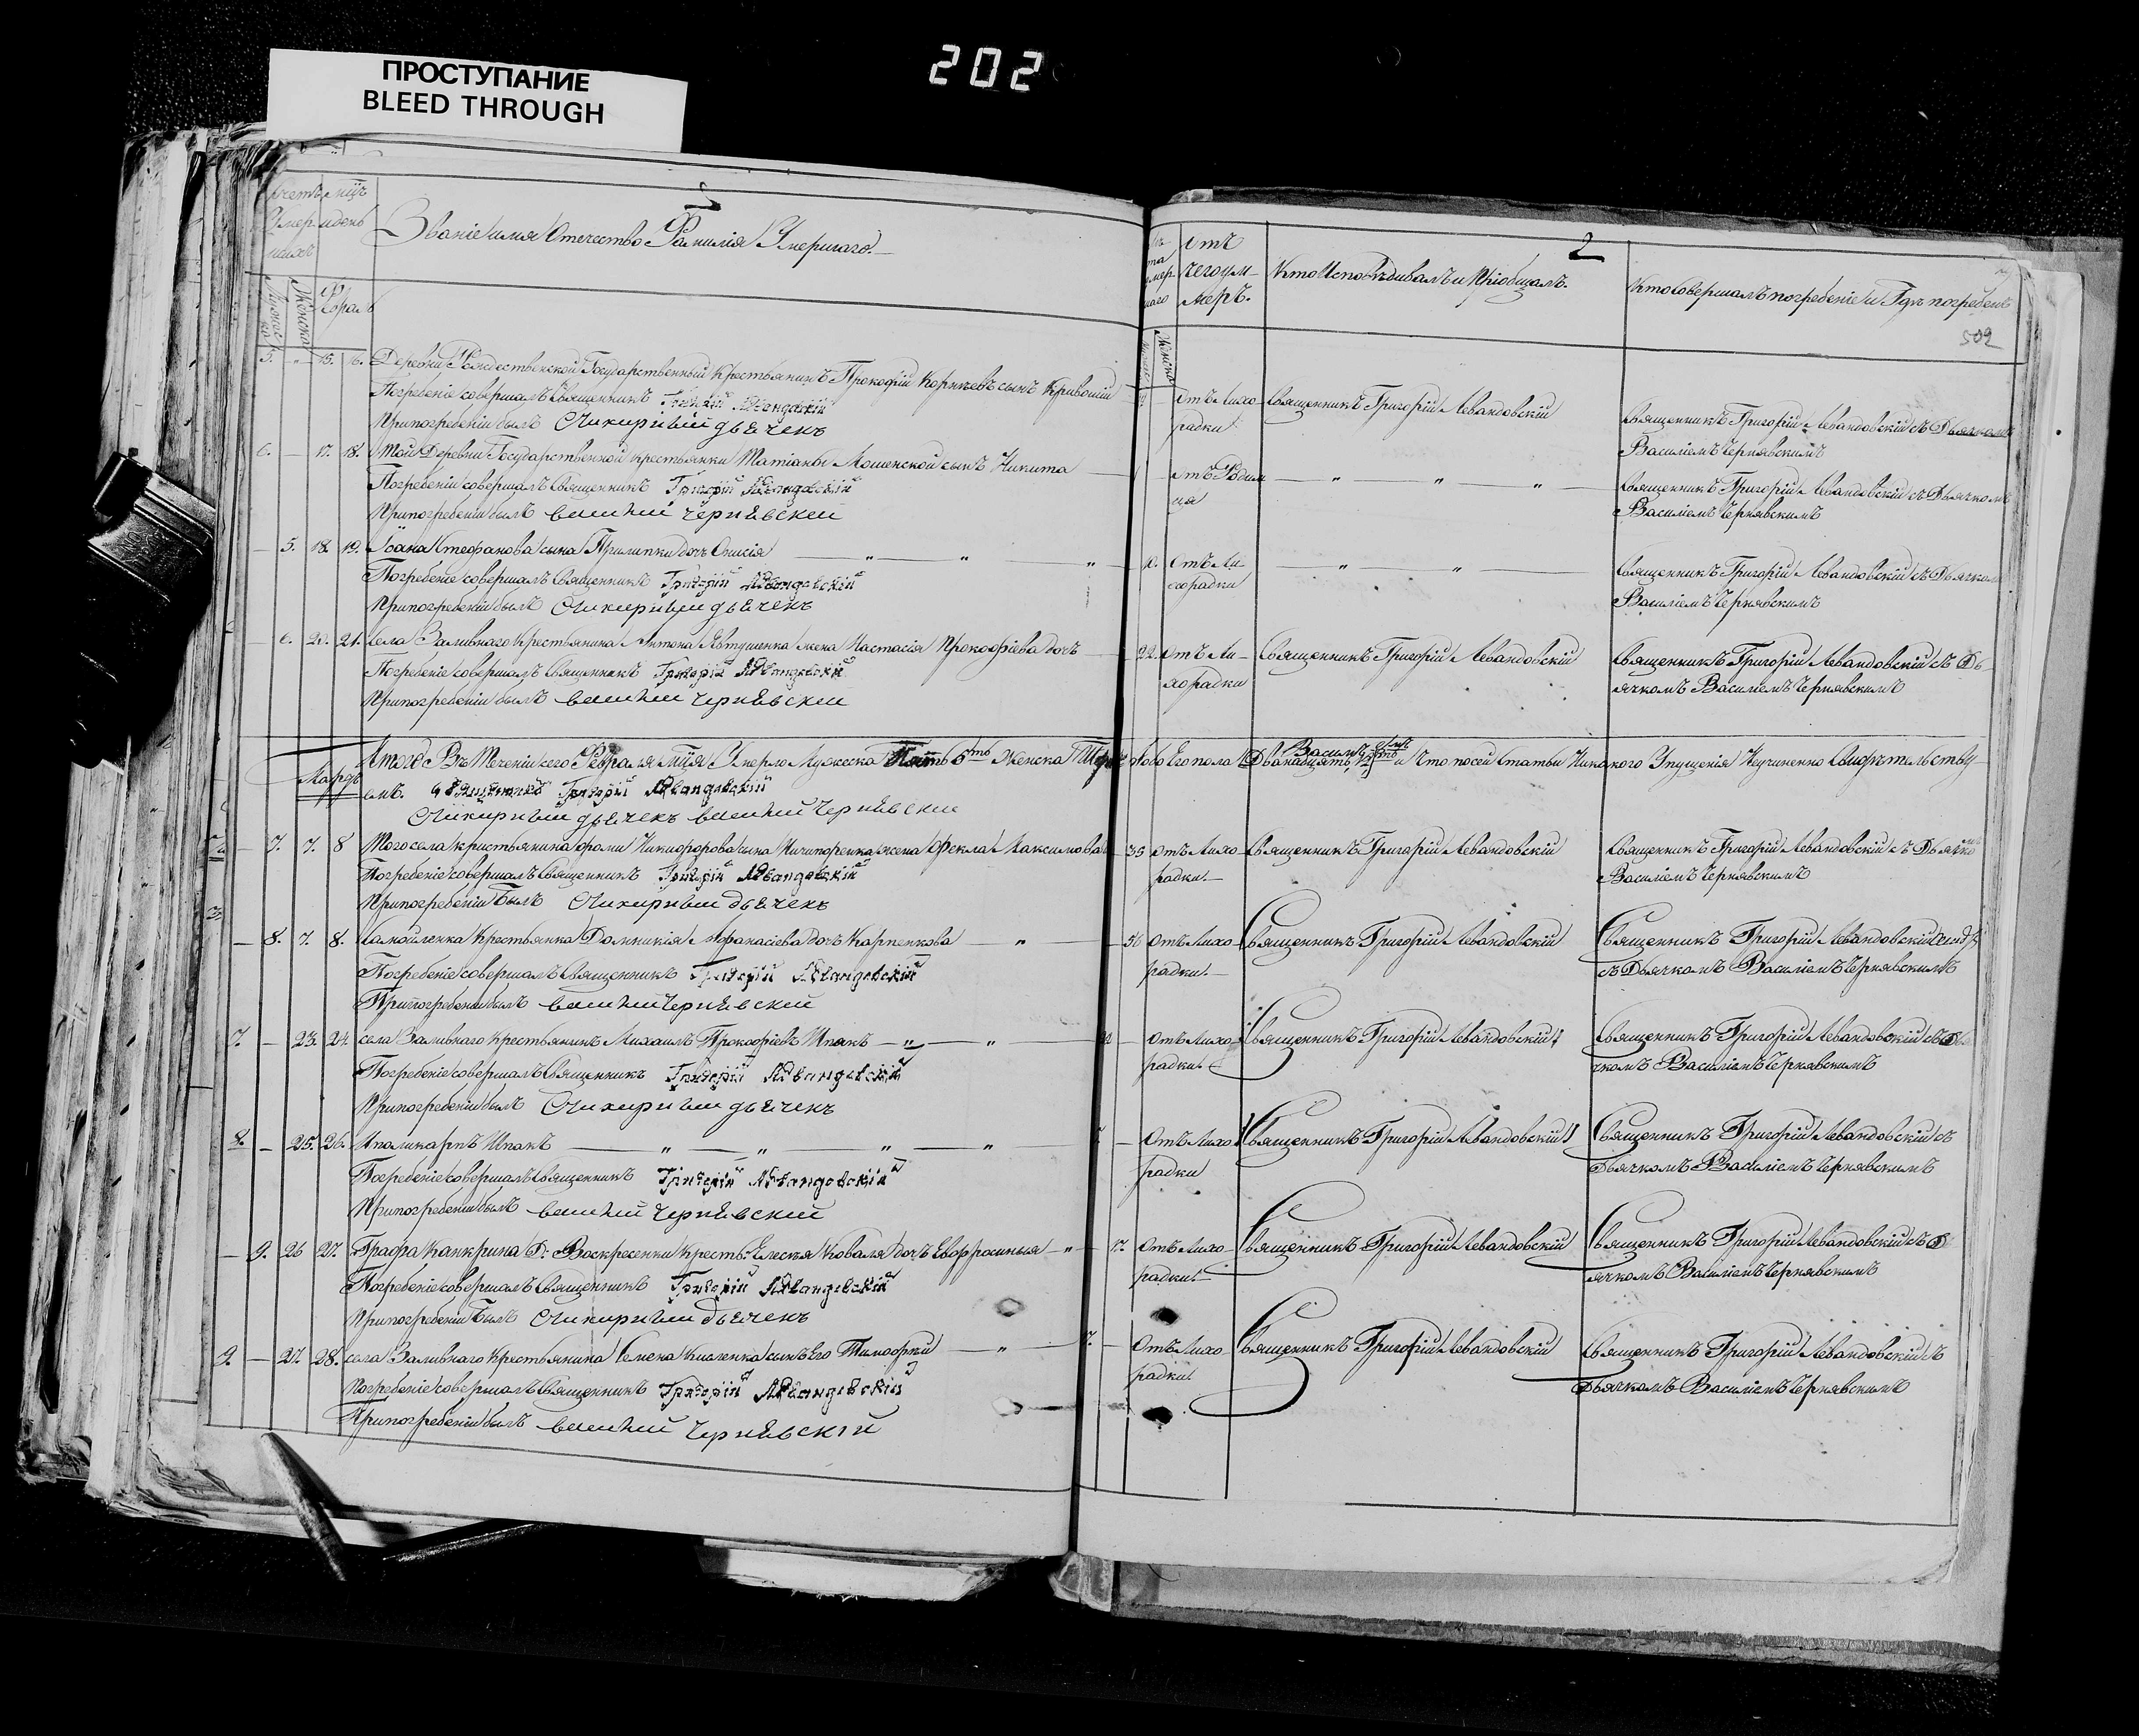 202
ПРОСТУПАНИЕ
BLEED THROUGH
Званіе имя Отечество Фамилія Умершаго.
2
Отъ чего умеръ.
Кто Исповѣдивалъ и Пріобщалъ.
Кто Совершалъ погребеніе и Гдѣ погребенъ
509
5. 15. 16. Деревни Рождественской Государственный Крестьянинъ Прокофій Корнѣевъ сынъ
Погребеніе совершалъ Священникъ Григорій Левандовскій
При погребеніи былъ дьячекъ
Отъ Лихорадки
Священникъ Григорій Левандовскій
Священникъ Григорій Левандовскій съ Дьячкомъ
Василіемъ Чернявскимъ
6. — 17. 18. Той Деревни Государственной крестьянки Татіаны Мошенской сынъ Никита
Погребеніи совершалъ Священникъ Григорій Левандовскій
При погребеніи былъ Василий Чернявский
Священникъ Григорій Левандовскій съ Дьячкомъ
Василіемъ Чернявскимъ
— 5. 18. 19. Іоана Стефанова сына Прилипки дочь Онисія
Погребеніе совершалъ Священникъ Григорій Левандовскій
При погребеніи былъ дьячекъ
Отъ Лихорадки
Священникъ Григорій Левандовскій съ Дьячкомъ
Василіемъ Чернявскимъ
— 6. 20. 21. Села Заливнаго Крестьянина Антона Явтушенка жена Настасія Прокофіева дочь
Погребеніе совершалъ Священникъ Григорій Левандовскій
При погребеніи былъ Василий Чернявский
22. Отъ Лихорадки
Священникъ Григорій Левандовскій
Священникъ Григорій Левандовскій съ Дьячкомъ Василіемъ Чернявскимъ
Итого Въ Теченіи сего Февраля Умерло Мужеска Пять 5ть Женска обоего пола и Что по сей Статьи Никакого Упущенія Неучиненно Свидѣтельствуемъ.
Мартъ
Священникъ Григорій Левандовскій
дьячекъ Василий Чернявский
— 7. 7. 8 Того села крестьянина Фомы Никифорова сына Ничипоренка жена Фекла Максимова
Погребеніе совершалъ Священникъ Григорій Левандовскій
При погребеніи Былъ дьячекъ
35 Отъ Лихорадки.
Священникъ Григорій Левандовскій
Священникъ Григорій Левандовскій съ Дьячкомъ
Василіемъ Чернявскимъ
— 8. 7. 8. Самойленка Крестьянка Домникія Афанасіева дочь Карпенкова
Погребеніе совершалъ Священникъ Григорій Левандовскій
При погребеніи былъ Василий Чернявский
56 Отъ Лихорадки.
Священникъ Григорій Левандовскій
Священникъ Григорій Левандовскій
съ Дьячкомъ Василіемъ Чернявскимъ
7. — 23. 24. села Заливнаго Крестьянинъ Михаилъ Прокофіевъ Шпакъ
Погребеніе совершалъ Священникъ Григорій Левандовскій
При погребеніи былъ дьячекъ
Отъ Лихорадки.
Священникъ Григорій Левандовскій
Священникъ Григорій Левандовскій съ Дьячкомъ Василіемъ Чернявскимъ
8. — 25. 26. Иполикарпъ Шпакъ
Погребеніе совершалъ Священникъ Григорій Левандовскій
При погребеніи былъ Василий Чернявский
Отъ Лихорадки
Священникъ Григорій Левандовскій
Священникъ Григорій Левандовскій съ
Дьячкомъ Василіемъ Чернявскимъ
— 9. 26 27. Графа Канкрина Д. Воскресенки Кресть: Елисея Коваля дочь Евфросинья
Погребеніе совершалъ Священникъ Григорій Левандовскій
При погребеніи Былъ дьячекъ
Отъ Лихорадки.
Священникъ Григорій Левандовскій
Священникъ Григорій Левандовскій съ Дьячкомъ Василіемъ Чернявскимъ
9. — 27. 28. села Заливнаго Крестьянина Семена Кисленка сынъ Его Тимофѣй
Погребеніе совершалъ Священникъ Григорій Левандовскій
При погребеніи былъ Василий Чернявскій
7. — Отъ Лихорадки
Священникъ Григорій Левандовскій
Священникъ Григорій Левандовскій съ
Дьячкомъ Василіемъ Чернявскимъ